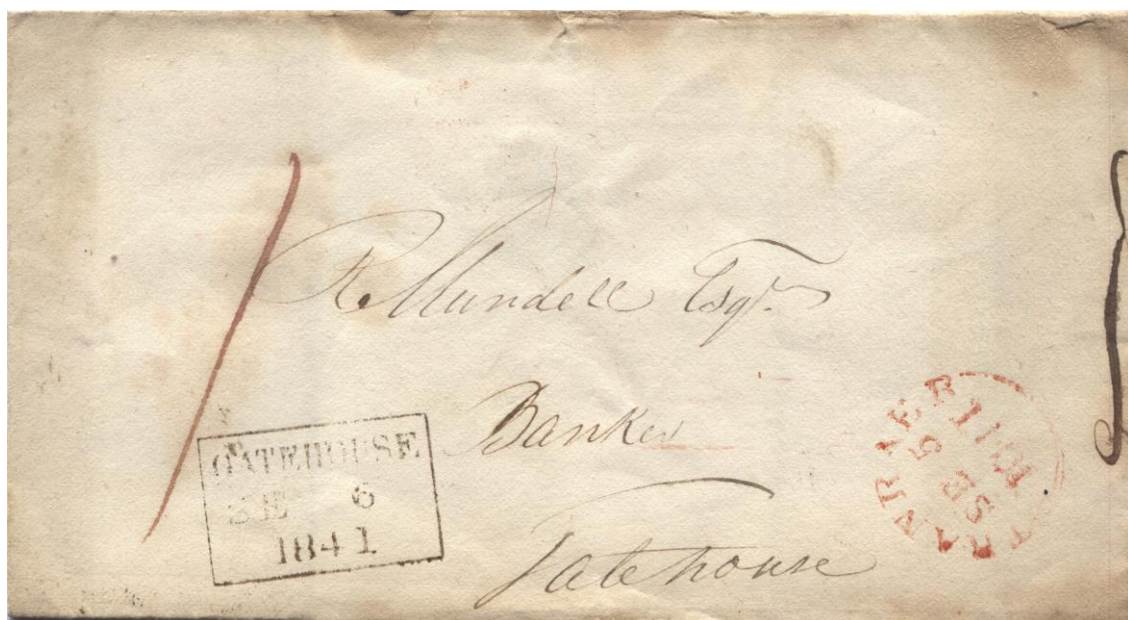 R. Mundell Esqr.
Banker
Gatehouse
GATEHOUSE
SE 6
1841
STRANRAER
SE 5
1841